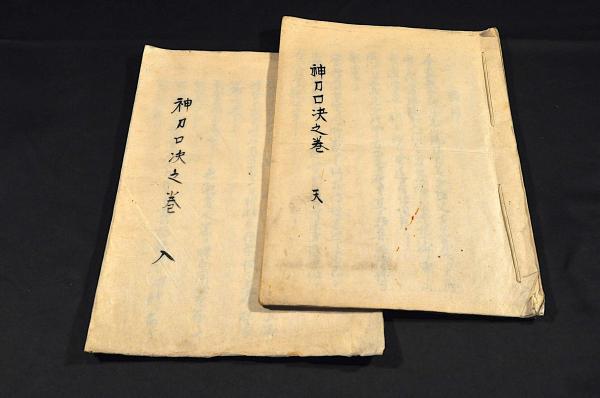 神刀口決之巻 天
神刀口決之巻 人